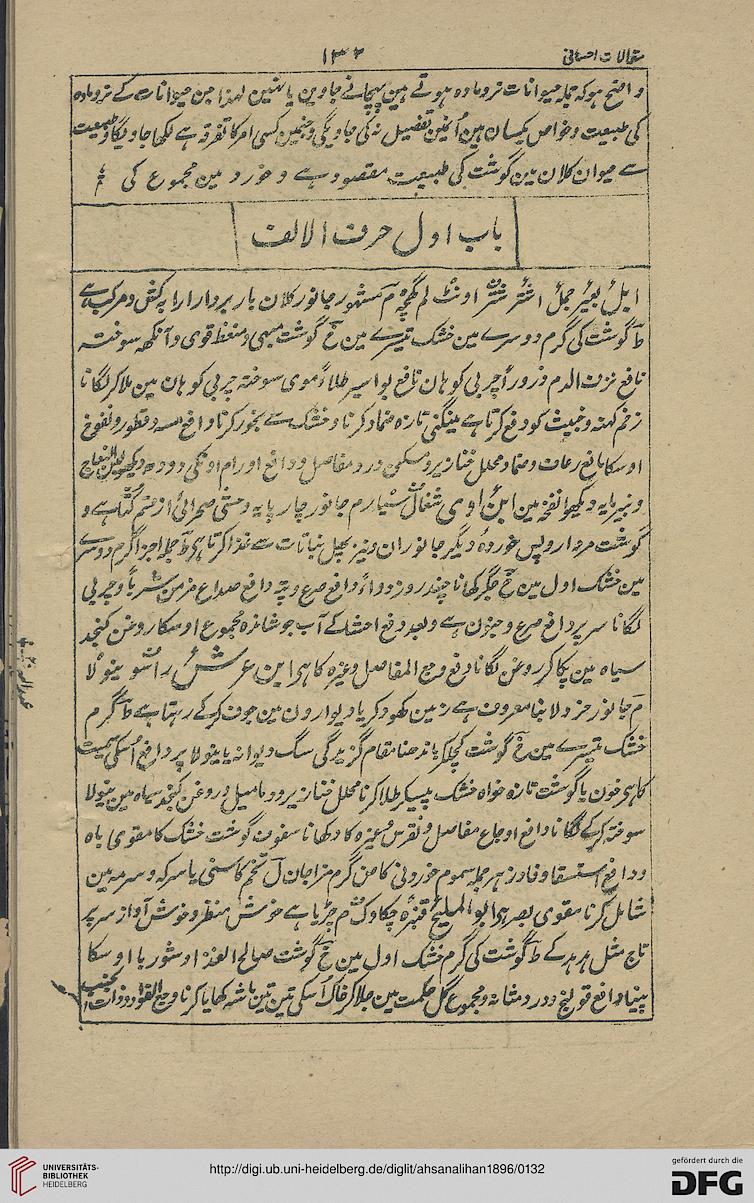 مقالات احسانی ۱۳۲
واضح ہو کہ جملہ حیوانات نر و مادہ ہوتے ہین پہچانے جاوین یا نہین لہذا جن حیوانات کے نر و مادہ
کی طبیعت و خواص یکسان ہین اُنمین تفصیل نہ کی جاویگی و جنمین کسی امر کا تفرقہ ہے لکھا جاویگا و طبیعت
سے حیوان کلان مین گوشت کی طبیعت مقصود ہے و خورد مین مجموع کی
باب اول حرف الالف
ابل بعیر جمل اشتر شتر اونٹ م مشہور جانور کلان بار بردار ارابہ کش و مرکب ہے
ط گوشت کی گرم دوسرے مین خشک تیسرے مین خ گوشت مبہی و منعظ قوی و آنکھہ سوختہ
نافع نزف الدم ذرورا چربی کوہان نافع بواسیر طلاءً موی سوختہ چربی کوہان مین ملا کر لگانا
زخم کہنہ و خبیث کو دفع کرتا ہے مینگنی تازہ ضماد کرنا و خشک سے بخور کرنا دافع و قطور و نفوخ
اوسکا مانع رعاف و ضماد محلل خنازیر و مسکن درد مفاصل و دافع اورام اونکی دودہ دیکھو لبن النعاج
و پنیر مایہ دیکھو انفحہ مین ابن اوی شغال سیار م جانور چارپایہ وحشی صحرائی از قسم کتا ہے و
گوشت مردار و پس خوردہ دیگر جانوران و نیز پھل نباتات سے غذا کرتا ہی ط جملہ اجزا گرم دوسرے
مین خشک اول مین خ جگر کھانا چند روز دواءً دافع صرع و پتہ دافع صداع مزمن شرباً و چربی
لگانا سر پر دافع صرع و جنون ہے و بعد دفع احشا کے آب جوشاندہ مجموع اوسکا روغن کنجد
سیاہ مین پکا کر روغن لگانا دفع وجع المفاصل وغیرہ کا ہی ابن عرس راسو نیولا
م جانور خرد لانبا معروف ہے زمین کھود کر یا دیوارون مین جوف کر کے رہتا ہے ط گرم
خشک تیسرے مین خ گوشت کچا کر باندھنا مقام گزیدگی سگ دیوانہ یا نیولا پر دافع اُسکی سمیت
کا ہی خون یا گوشت تازہ خواہ خشک پیسکر طلا کرنا محلل خنازیر و دبامیل و روغن کنجد سیاہ مین نیولا
سوختہ کر کے لگانا دافع اوجاع مفاصل و نقرس وغیرہ کا و کھانا سفوف گوشت خشک کا مقوی باہ
و دافع استسقا و فادزہر جملہ سموم خوردنی کا ض گرم مزاجان ل تخم کاسنی یا سرکہ و سرمہ مین
شامل کرنا مقوی بصر ہی ابو الملیح قنبرہ چکاوک م چڑیا ہے خوش منظر و خوش آواز سر پر
تاج مثل ہدہد کے ط گوشت کی گرم خشک اول مین خ گوشت صالح الغذا و شوربا اوسکا
پینا دافع قولنج و درد مثانہ و مجموع گل حکمت مین جلا کر خاک اُسکی تین تین ماشہ کھایا کرنا وجع الفواد و ذات الجنب
http://digi.ub.uni-heidelberg.de/diglit/ahsanalihan1896/0132
UNIVERSITÄTS-
BIBLIOTHEK
HEIDELBERG
gefördert durch die
DFG